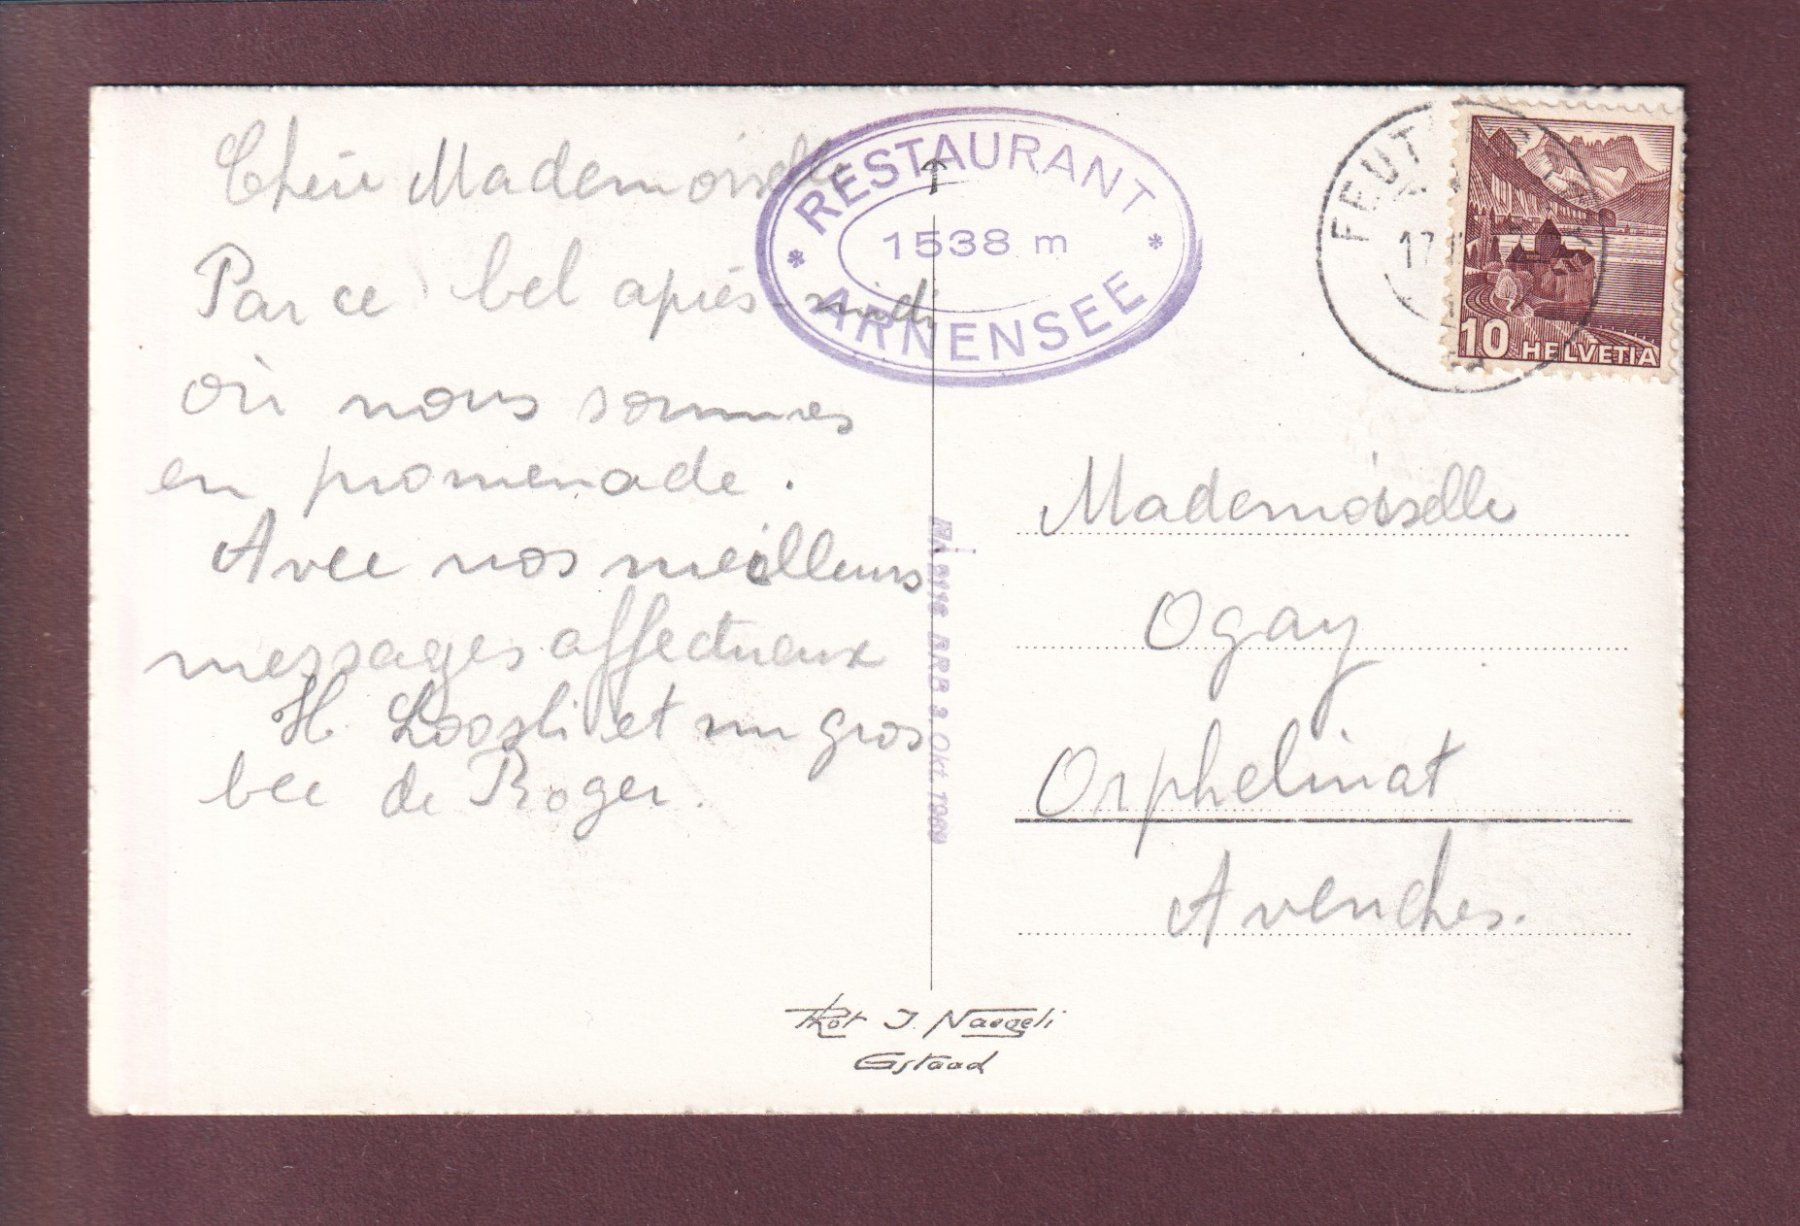 Chère Mademoiselle
Par ce bel après-midi
où nous sommes
en promenade.
Avec nos meilleurs
messages affectueux
H. Loosli et un gros
bec de Roger.
* RESTAURANT *
1538 m
ARNENSEE
10 HELVETIA
17
Mademoiselle
Ogay
Orphelinat
Avenches.
ARB 3. Okt.
Phot J. Naegeli
Gstaad